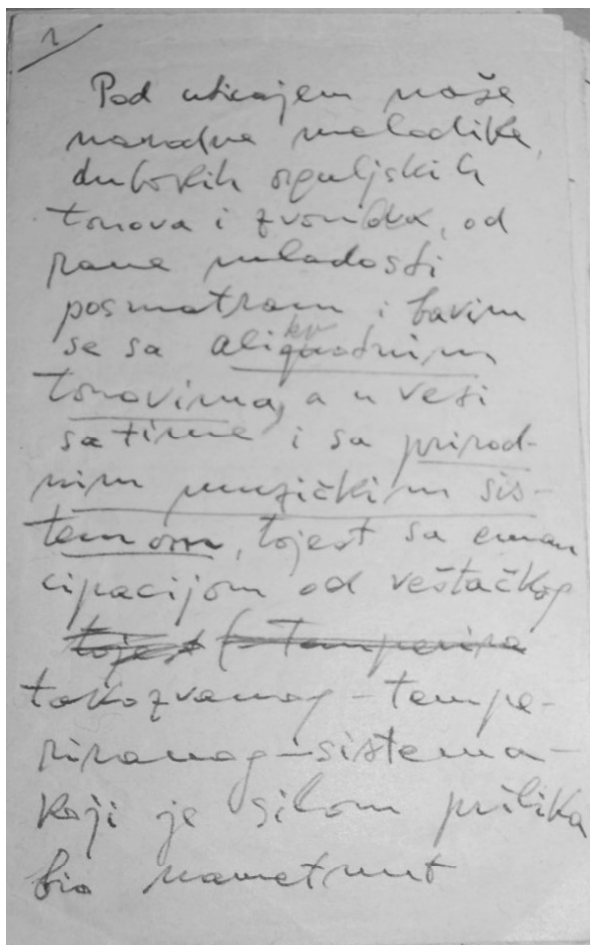 1
Pod uticajem naše
narodne melodike,
dubokih orguljskih
tonova i zvonđva, od
rane mladosti
posmatram i bavim
se sa alikvodnim
tonovima, a u vezi
sa time i sa prirod-
nim muzičkim sis-
temom, tojest sa eman
cipacijom od veštačkog
tojest (temperira
takozvanog - tempe-
riranog - sistema -
koji je silom prilika
bio nametnut